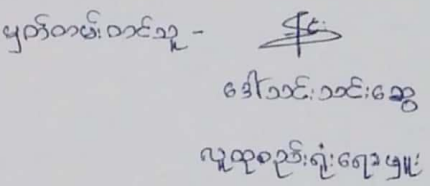 မှတ်တမ်းတင်သူ -
ဒေါ်သင်းသင်းဆွေ
လူထုစည်းရုံးရေးမှူး